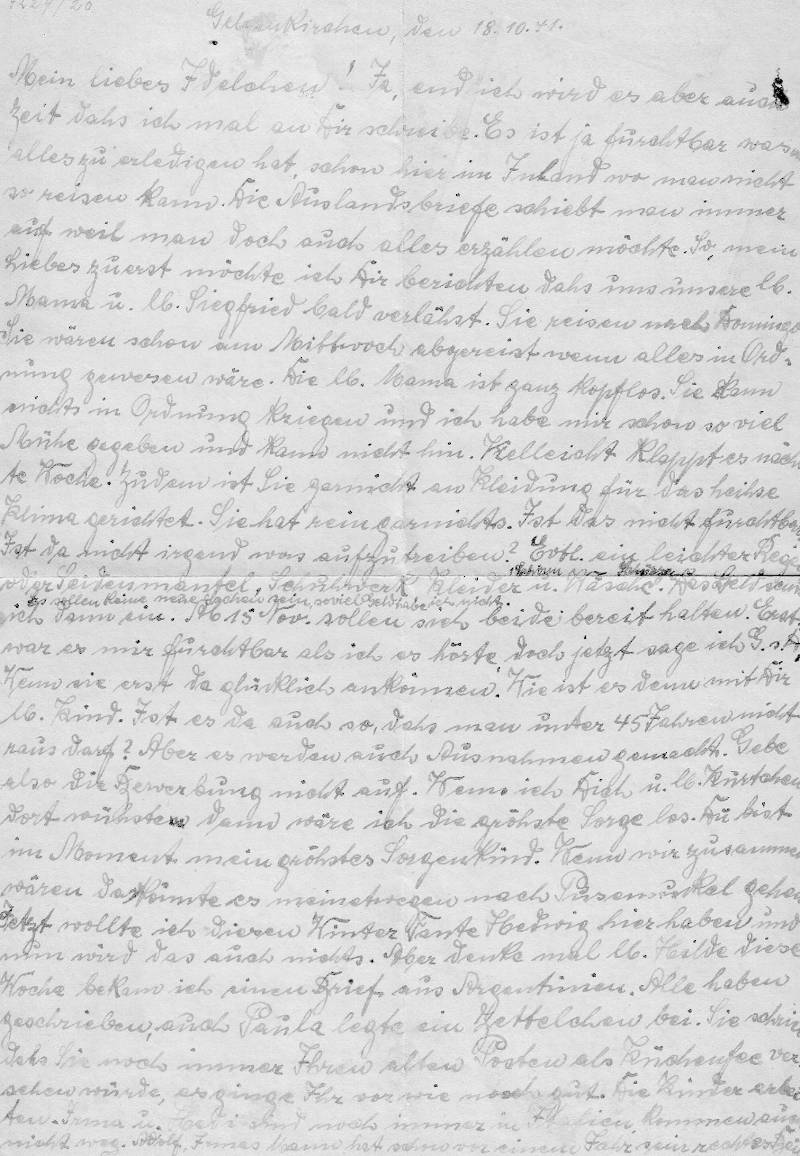 1229/20
Gelsenkirchen, den 18.10.41.
Mein liebes Idelchen! Ja, endlich wird es aber auch
Zeit dahs ich mal an Dir schreibe. Es ist ja furchtbar was man
alles zu erledigen hat, schon hier im Inland wo man nicht
so reisen kann. Die Auslandsbriefe schiebt man immer
auf weil man doch auch alles erzählen möchte. So, mein
Liebes zuerst möchte ich Dir berichten dahs uns unsere lb.
Mama u. lb. Siegfried bald verlähst. Sie reisen nach Domingo
Sie wären schon am Mittwoch abgereist wenn alles in Ord-
nung gewesen wäre. Die lb. Mama ist ganz kopflos. Sie kann
nichts in Ordnung kriegen und ich habe mir schon so viel
Mühe gegeben und kann nicht hin. Vielleicht klappt es näch
te Woche. Zudem ist Sie garnicht an Kleidung für das heihse
Klima gerichtet. Sie hat rein garnichts. Ist das nicht furchtbar
Ist da nicht irgend was aufzutreiben? Evtl. ein leichter Reg
oder Seidenmantel, Schuhwerk Kleider u. Wäsche. Das Geld
es sollen keine neue Sachen sein, soviel Geld habe ich nicht.
ich dann ein. Ab 15 Nov. sollen sich beide bereit halten. Erst
war es mir furchtbar als ich es hörte, doch jetzt sage ich G. s. D
Wenn sie erst da glücklich ankommen. Wie ist es denn mit Dir
lb. Kind. Ist es da auch so, dahs man unter 45 Jahren nicht
raus darf? Aber es werden auch Ausnahmen gemacht. Gebe
also die Bewerbung nicht auf. Wenn ich Dich u. lb. Kürtchen
dort wühste, dann wäre ich die gröhste Sorge los. Du bist
im Moment mein gröhstes Sorgenkind. Wenn wir zusammen
wären da könnte es meinetwegen nach Pusemukel gehen
Jetzt wollte ich diesen Winter Tante Hedwig hier haben und
nun wird das auch nichts. Aber denke mal lb. Hilde diese
Woche bekam ich einen Brief aus Argentinien. Alle haben
geschrieben, auch Paula legte ein Zettelchen bei. Sie schrieb
dahs Sie noch immer Ihren alten Posten als Küchenfee ver-
sehen würde, es ginge Ihr vor wie nach gut. Die Kinder arbei
ten. Irma u. Hedi sind noch immer in Italien kommen auch
nicht weg. Adolf, Irmas Mann hat schon vor einem Jahr sein